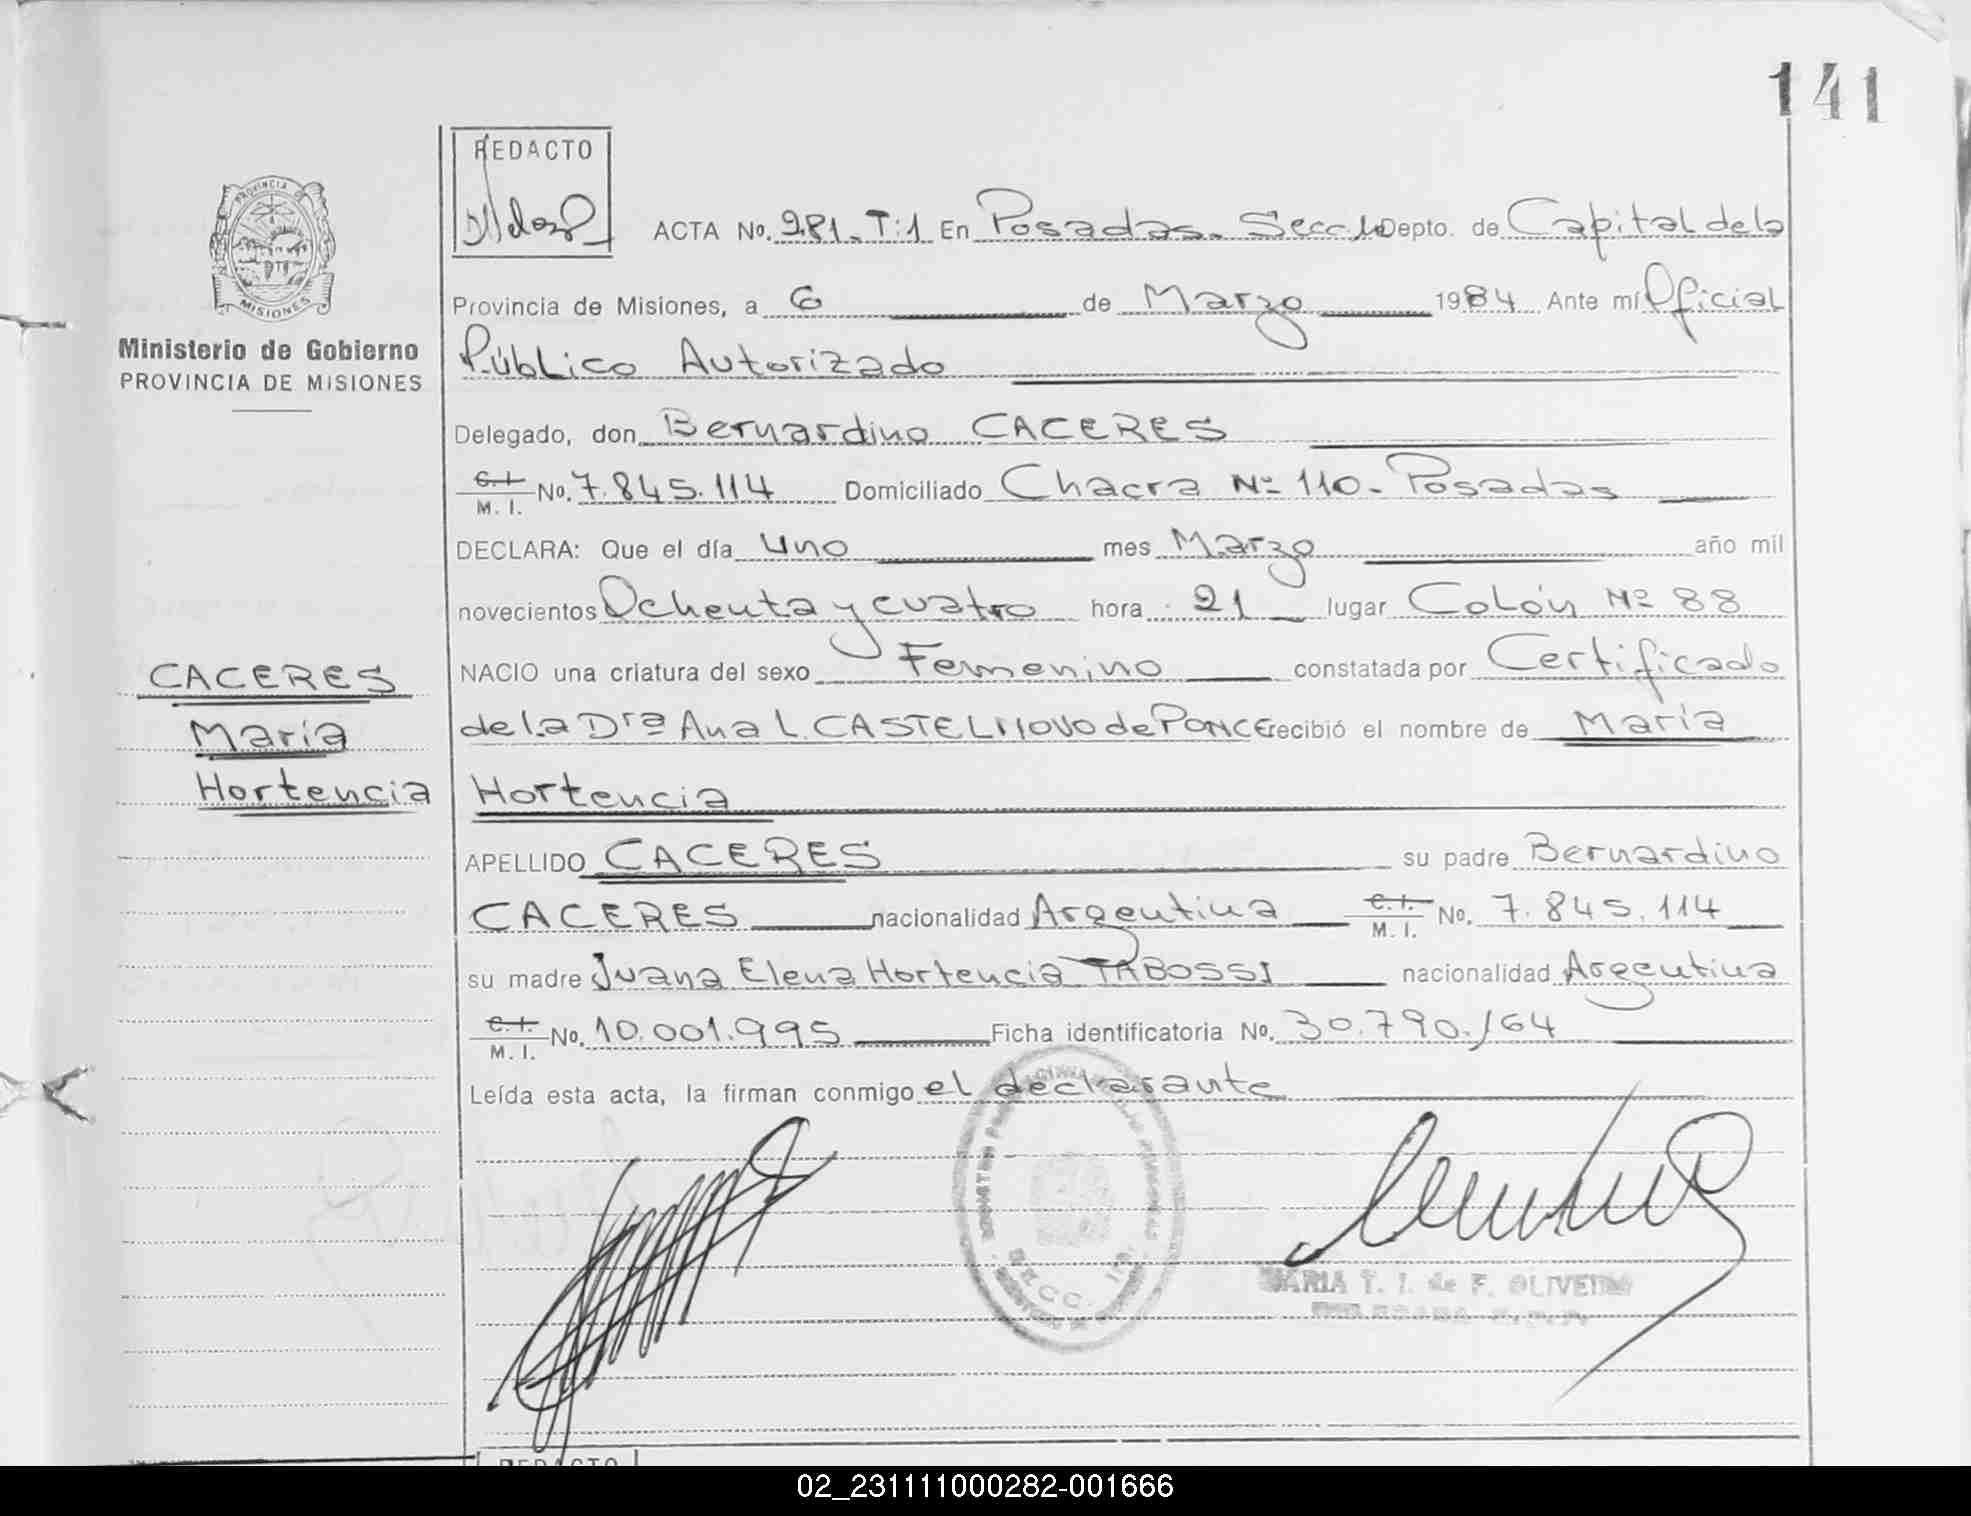 141
REDACTO
ACTA No. 281. T:1 En Posadas. Secc. 1a Depto. de Capital de la
Provincia de Misiones, a 6 de Marzo 1984 Ante mí Oficial
Público Autorizado
Delegado, don Bernardino CACERES
C.I. M. I. No. 7.845.114 Domiciliado Chacra Nº 110 - Posadas
DECLARA: Que el día Uno mes Marzo año mil
novecientos Ochenta y cuatro hora 21 lugar Colón Nº 88
NACIO una criatura del sexo Femenino constatada por Certificado
de la Dra Ana L. CASTELNOVO de PONCE recibió el nombre de María
Hortencia
APELLIDO CACERES su padre Bernardino
CACERES nacionalidad Argentina C.I. M. I. No. 7.845.114
su madre Juana Elena Hortencia TABOSSI nacionalidad Argentina
C.I. M. I. No. 10.001.995 Ficha identificatoria No. 30.790./64
Leída esta acta, la firman conmigo el declarante
PROVINCIA DE
MISIONES
Ministerio de Gobierno
PROVINCIA DE MISIONES
CACERES
María
Hortencia
SECC. 1ra.
MARIA T. I. de F. OLIVEIRA
REDACTO
02_231111000282-001666